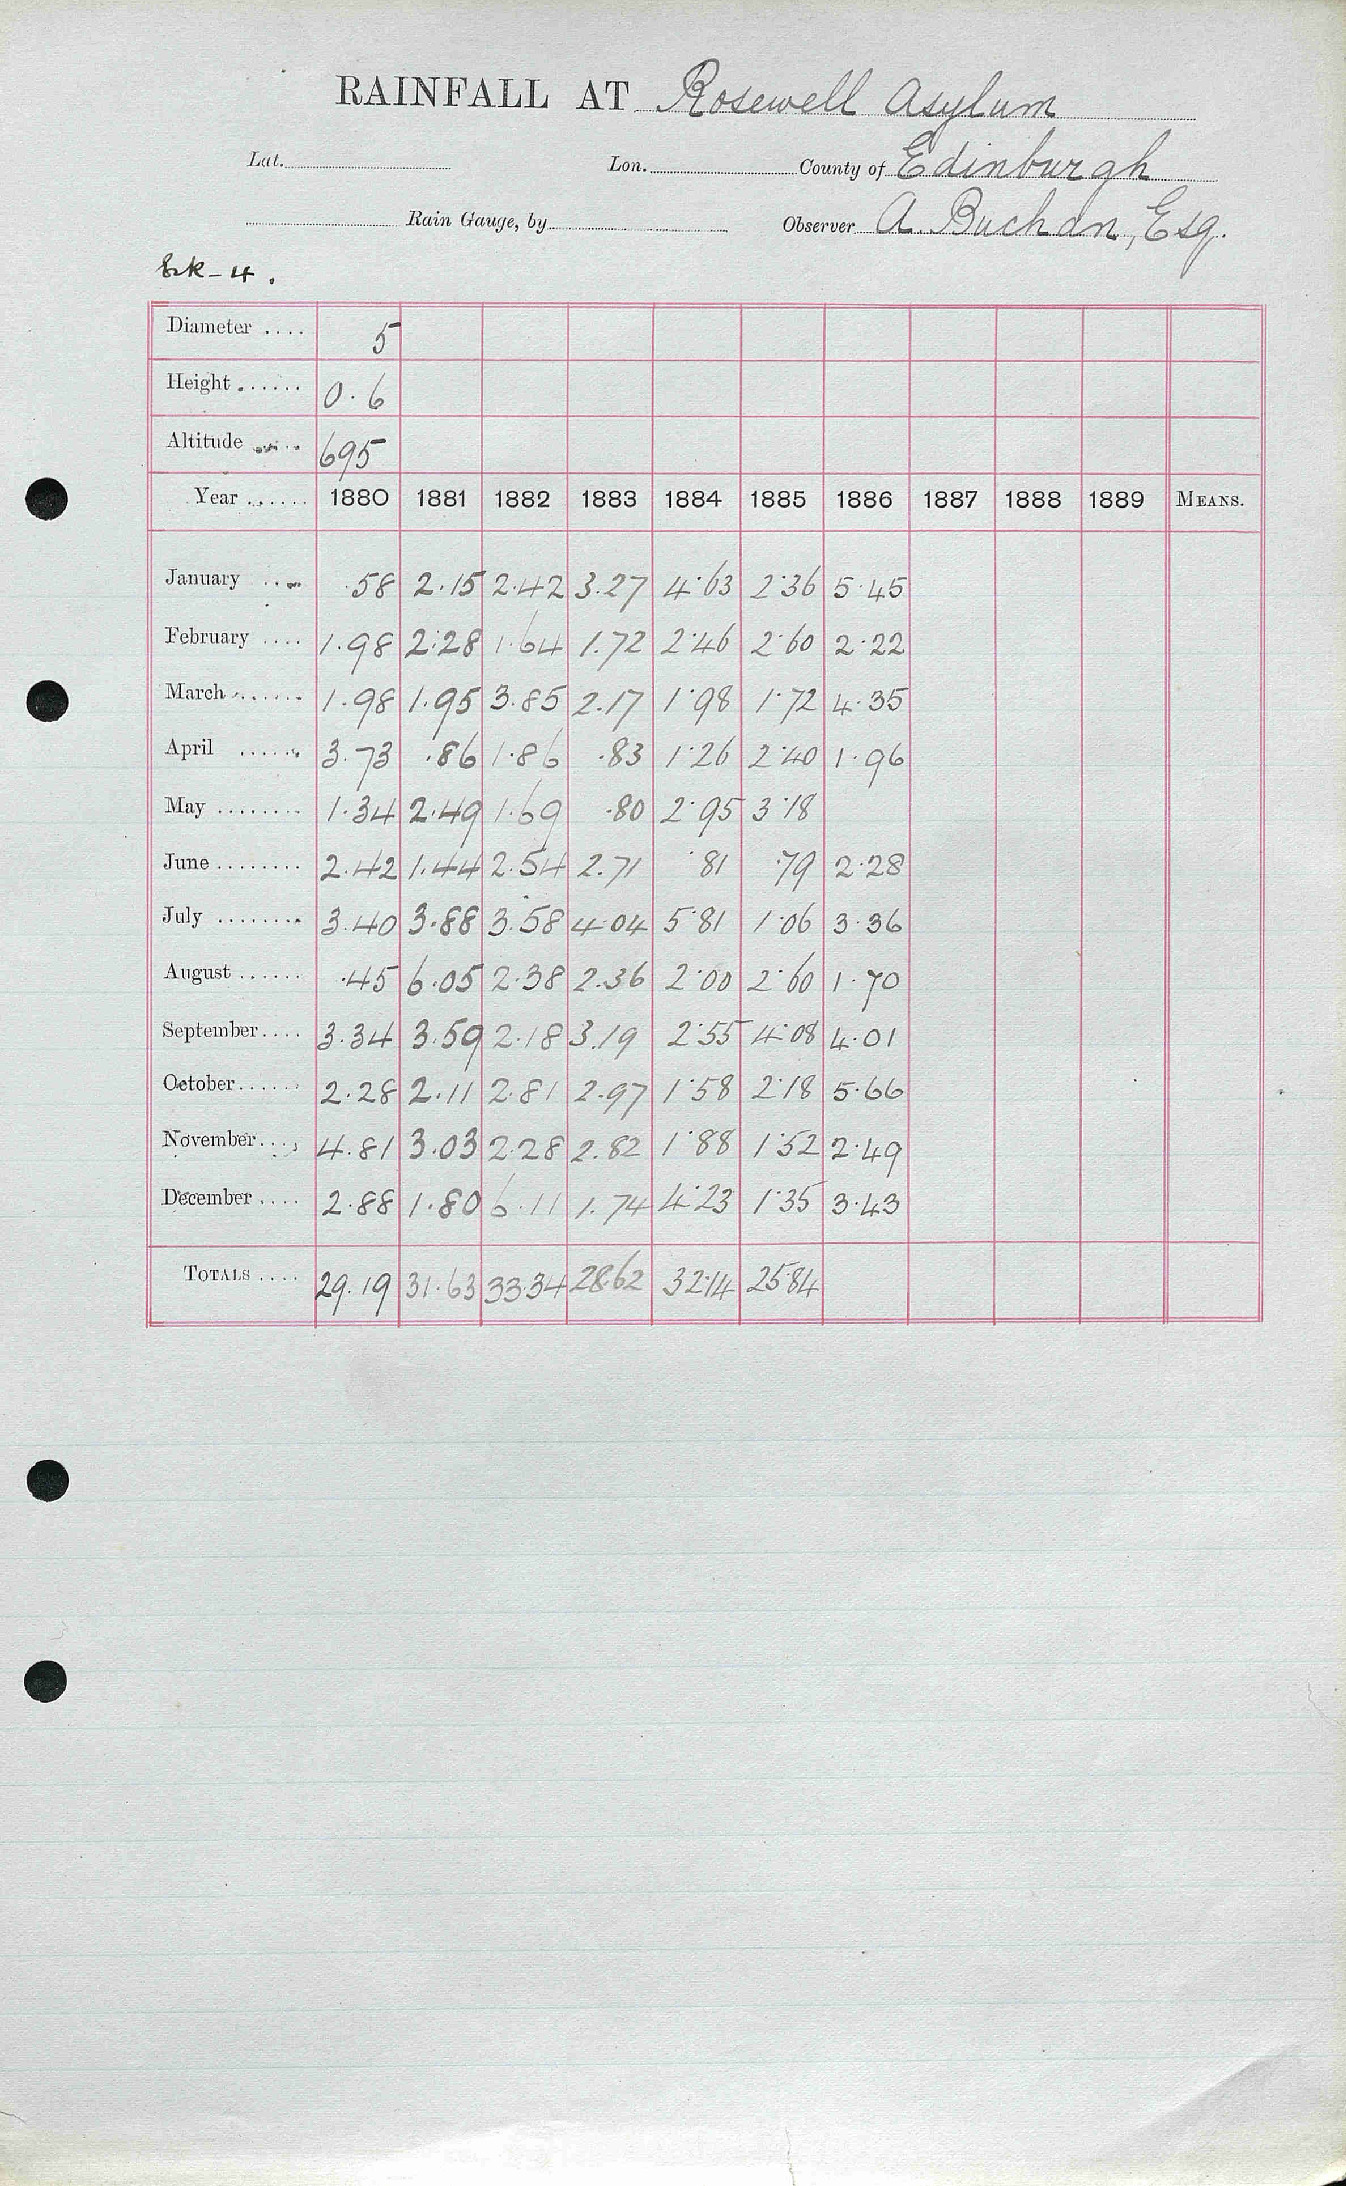 RAINFALL AT Rosewell Asylum
Lat. Lon. County of Edinburgh
Rain Gauge, by Observer A. Buchan, Esq.
Diameter .... 5
Height ...... 0.6
Altitude .... 695
Year ...... 1880 1881 1882 1883 1884 1885 1886 1887 1888 1889 MEANS.
January .... .58 2.15 2.42 3.27 4.63 2.36 5.45
February .... 1.98 2.28 1.64 1.72 2.46 2.60 2.22
March ....... 1.98 1.95 3.85 2.17 1.98 1.72 4.35
April ...... 3.73 .86 1.86 .83 1.26 2.40 1.96
May ........ 1.34 2.49 1.69 .80 2.95 3.18
June ........ 2.42 1.44 2.54 2.71 .81 .79 2.28
July ........ 3.40 3.88 3.58 4.04 5.81 1.06 3.36
August ...... .45 6.05 2.38 2.36 2.00 2.60 1.70
September .... 3.34 3.59 2.18 3.19 2.55 4.08 4.01
October ...... 2.28 2.11 2.81 2.97 1.58 2.18 5.66
November .... 4.81 3.03 2.28 2.82 1.88 1.52 2.49
December .... 2.88 1.80 6.11 1.74 4.23 1.35 3.43
TOTALS .... 29.19 31.63 33.34 28.62 32.14 25.84